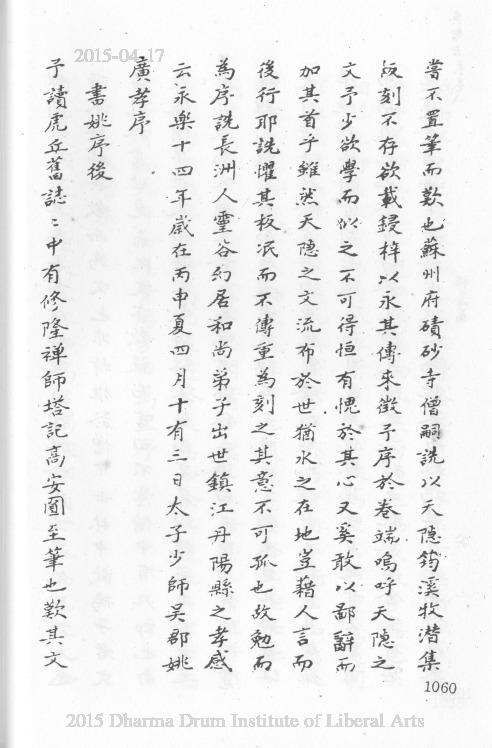 2015-04-17
嘗不置筆而歎也蘇州府磧砂寺僧嗣詵以天隱筠溪牧潛集
版刻不存欲載鋟梓以永其傳來徵予序於卷端嗚呼天隱之
文予少欲學而似之不可得恒有愧於其心又奚敢以鄙辭而
加其首乎雖然天隱之文流布於世猶水之在地豈藉人言而
後行耶詵懼其板泯而不傳重為刻之其意不可孤也故勉而
為序詵長洲人靈谷幻居和尚弟子出世鎮江丹陽縣之孝感
云永樂十四年歲在丙申夏四月十有三日太子少師吳郡姚
廣孝序
書姚序後
予讀虎丘舊誌〻中有修隆禪師塔記高安圓至筆也歎其文
1060
2015 Dharma Drum Institute of Liberal Arts